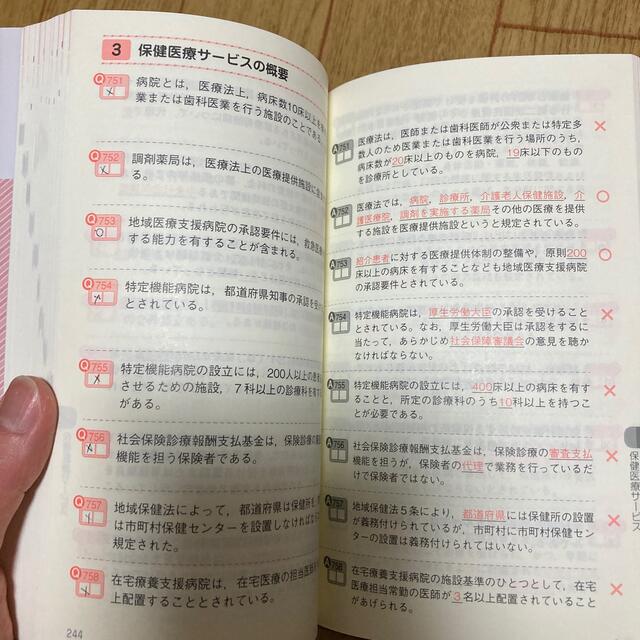 3 保健医療サービスの概要
Q751
病院とは，医療法上，病床数10床以上を
業または歯科医業を行う施設のことである
Q752
調剤薬局は，医療法上の医療提供施設に
る。
Q753
地域医療支援病院の承認要件には，救急医
する能力を有することが含まれる。
Q754
特定機能病院は，都道府県知事の承認を受け
とされている。
Q755
特定機能病院の設立には，200人以上の患者
させるための施設，7科以上の診療科を有す
がある。
Q756
社会保険診療報酬支払基金は，保険診療の
機能を担う保険者である。
Q757
地域保健法によって，都道府県は保健所を
は市町村保健センターを設置しなければなら
規定された。
Q758
在宅療養支援病院は，在宅医療の担当医師
上配置することとされている。
244
A751
医療法は，医師または歯科医師が公衆または特定多
数人のため医業または歯科医業を行う場所のうち，
病床数が20床以上のものを病院，19床以下のもの
を診療所としている。
×
A752
医療法では，病院，診療所，介護老人保健施設，介
護医療院，調剤を実施する薬局その他の医療を提供
する施設を医療提供施設というと規定されている。
○
A753
紹介患者に対する医療提供体制の整備や，原則200
床以上の病床を有することなども地域医療支援病院
の承認要件とされている。
○
A754
特定機能病院は，厚生労働大臣の承認を受けること
とされている。なお，厚生労働大臣は承認をするに
当たって，あらかじめ社会保障審議会の意見を聴か
なければならない。
×
A755
特定機能病院の設立には，400床以上の病床を有す
ることと，所定の診療科のうち10科以上を持つこ
とが必要である。
×
A756
社会保険診療報酬支払基金は，保険診療の審査支払
機能を担うが，保険者の代理で業務を行っているだ
けで保険者ではない。
×
A757
地域保健法5条により，都道府県には保健所の設置
が義務付けられているが，市町村に市町村保健セン
ターの設置は義務付けられてはいない。
×
A758
在宅療養支援病院の施設基準のひとつとして，在宅
医療担当常勤の医師が3名以上配置されていること
があげられる。
×
保健医療サービス